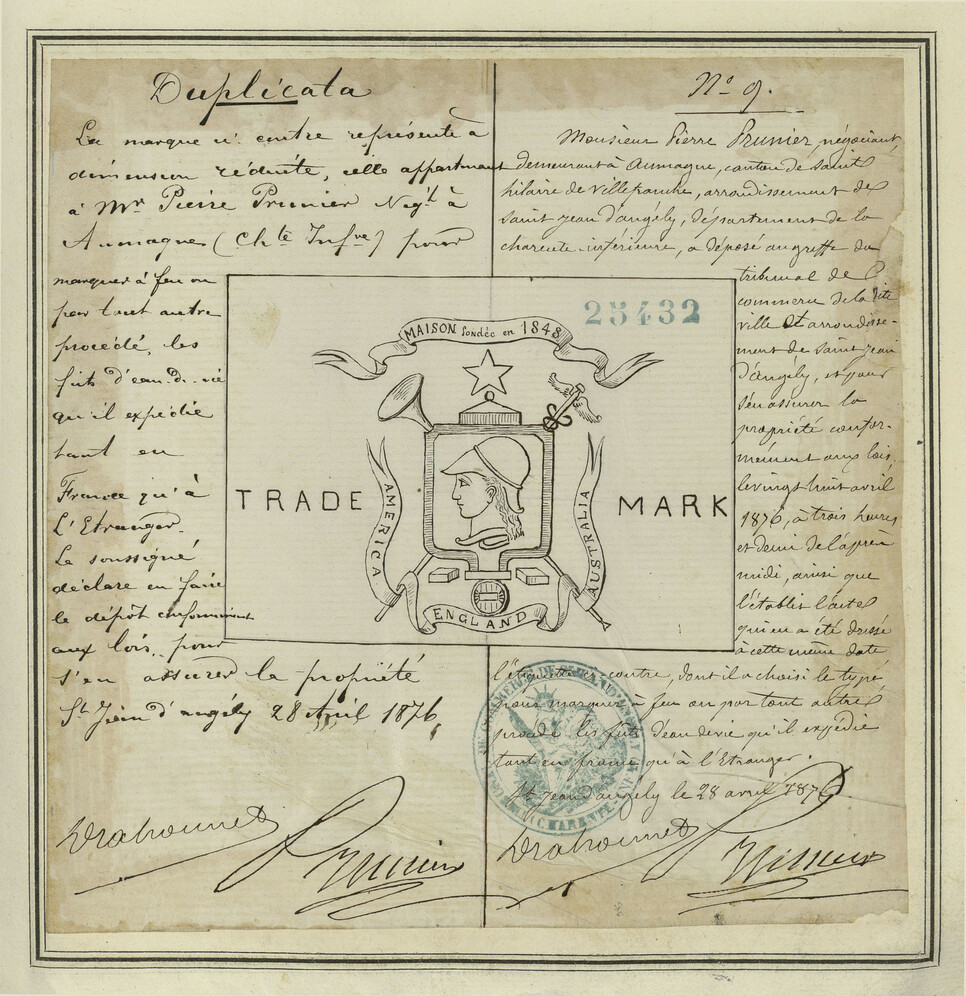 Duplicata
La marque ci contre représente à
dimension réduite, celle appartenant
à Mr Pierre Prunier Negt à
Aumagne (Chte Infre) pour
marquer à feu ou
par tout autre
procédé, les
futs d'eau-de-vie
qu'il expédie
tant en
France qu'à
L'Etranger.
Le soussigné
déclare en faire
le dépôt conformément
aux lois, pour
s'en assurer la propriété
St Jean d'angély 28 Avril 1876
Drahonnet
Prunier
No 9.
Monsieur Pierre Prunier, négociant,
demeurant à Aumagne, canton de Saint
hilaire de Villefranche, arrondissement de
Saint Jean d'angély, département de la
charente inférieure, a déposé au greffe du
tribunal de
commerce de la dite
ville et arrondisse-
ment de Saint Jean
d'angély, et pour
s'en assurer la
propriété confor-
mément aux lois,
le vingt huit avril
1876, à trois heures
et demi de l'après
midi, ainsi que
l'établit l'acte
qui en a été dressé
à cette même date
l'étiquette ci contre, dont il a choisi le type
pour marquer à feu ou par tout autre
procédé les futs d'eau de vie qu'il expédie
tant en france qu'à l'Etranger.
St Jean d'angély le 28 avril 1876
Drahonnet
Prunier
25432
MAISON fondée en 1848
TRADE MARK
AMERICA
AUSTRALIA
ENGLAND